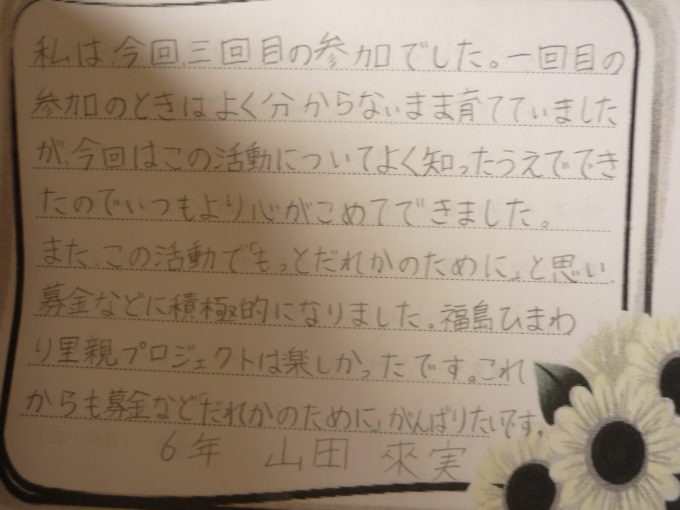 私は、今回、三回目の参加でした。一回目の
参加のときはよく分からないまま育てていました
が、今回はこの活動についてよく知ったうえででき
たのでいつもより心がこめてできました。
また、この活動で「もっとだれかのために」と思い、
募金などに積極的になりました。福島ひまわ
り里親プロジェクトは楽しかったです。これ
からも募金など「だれかのために」がんばりたいです。
6年 山田 來実